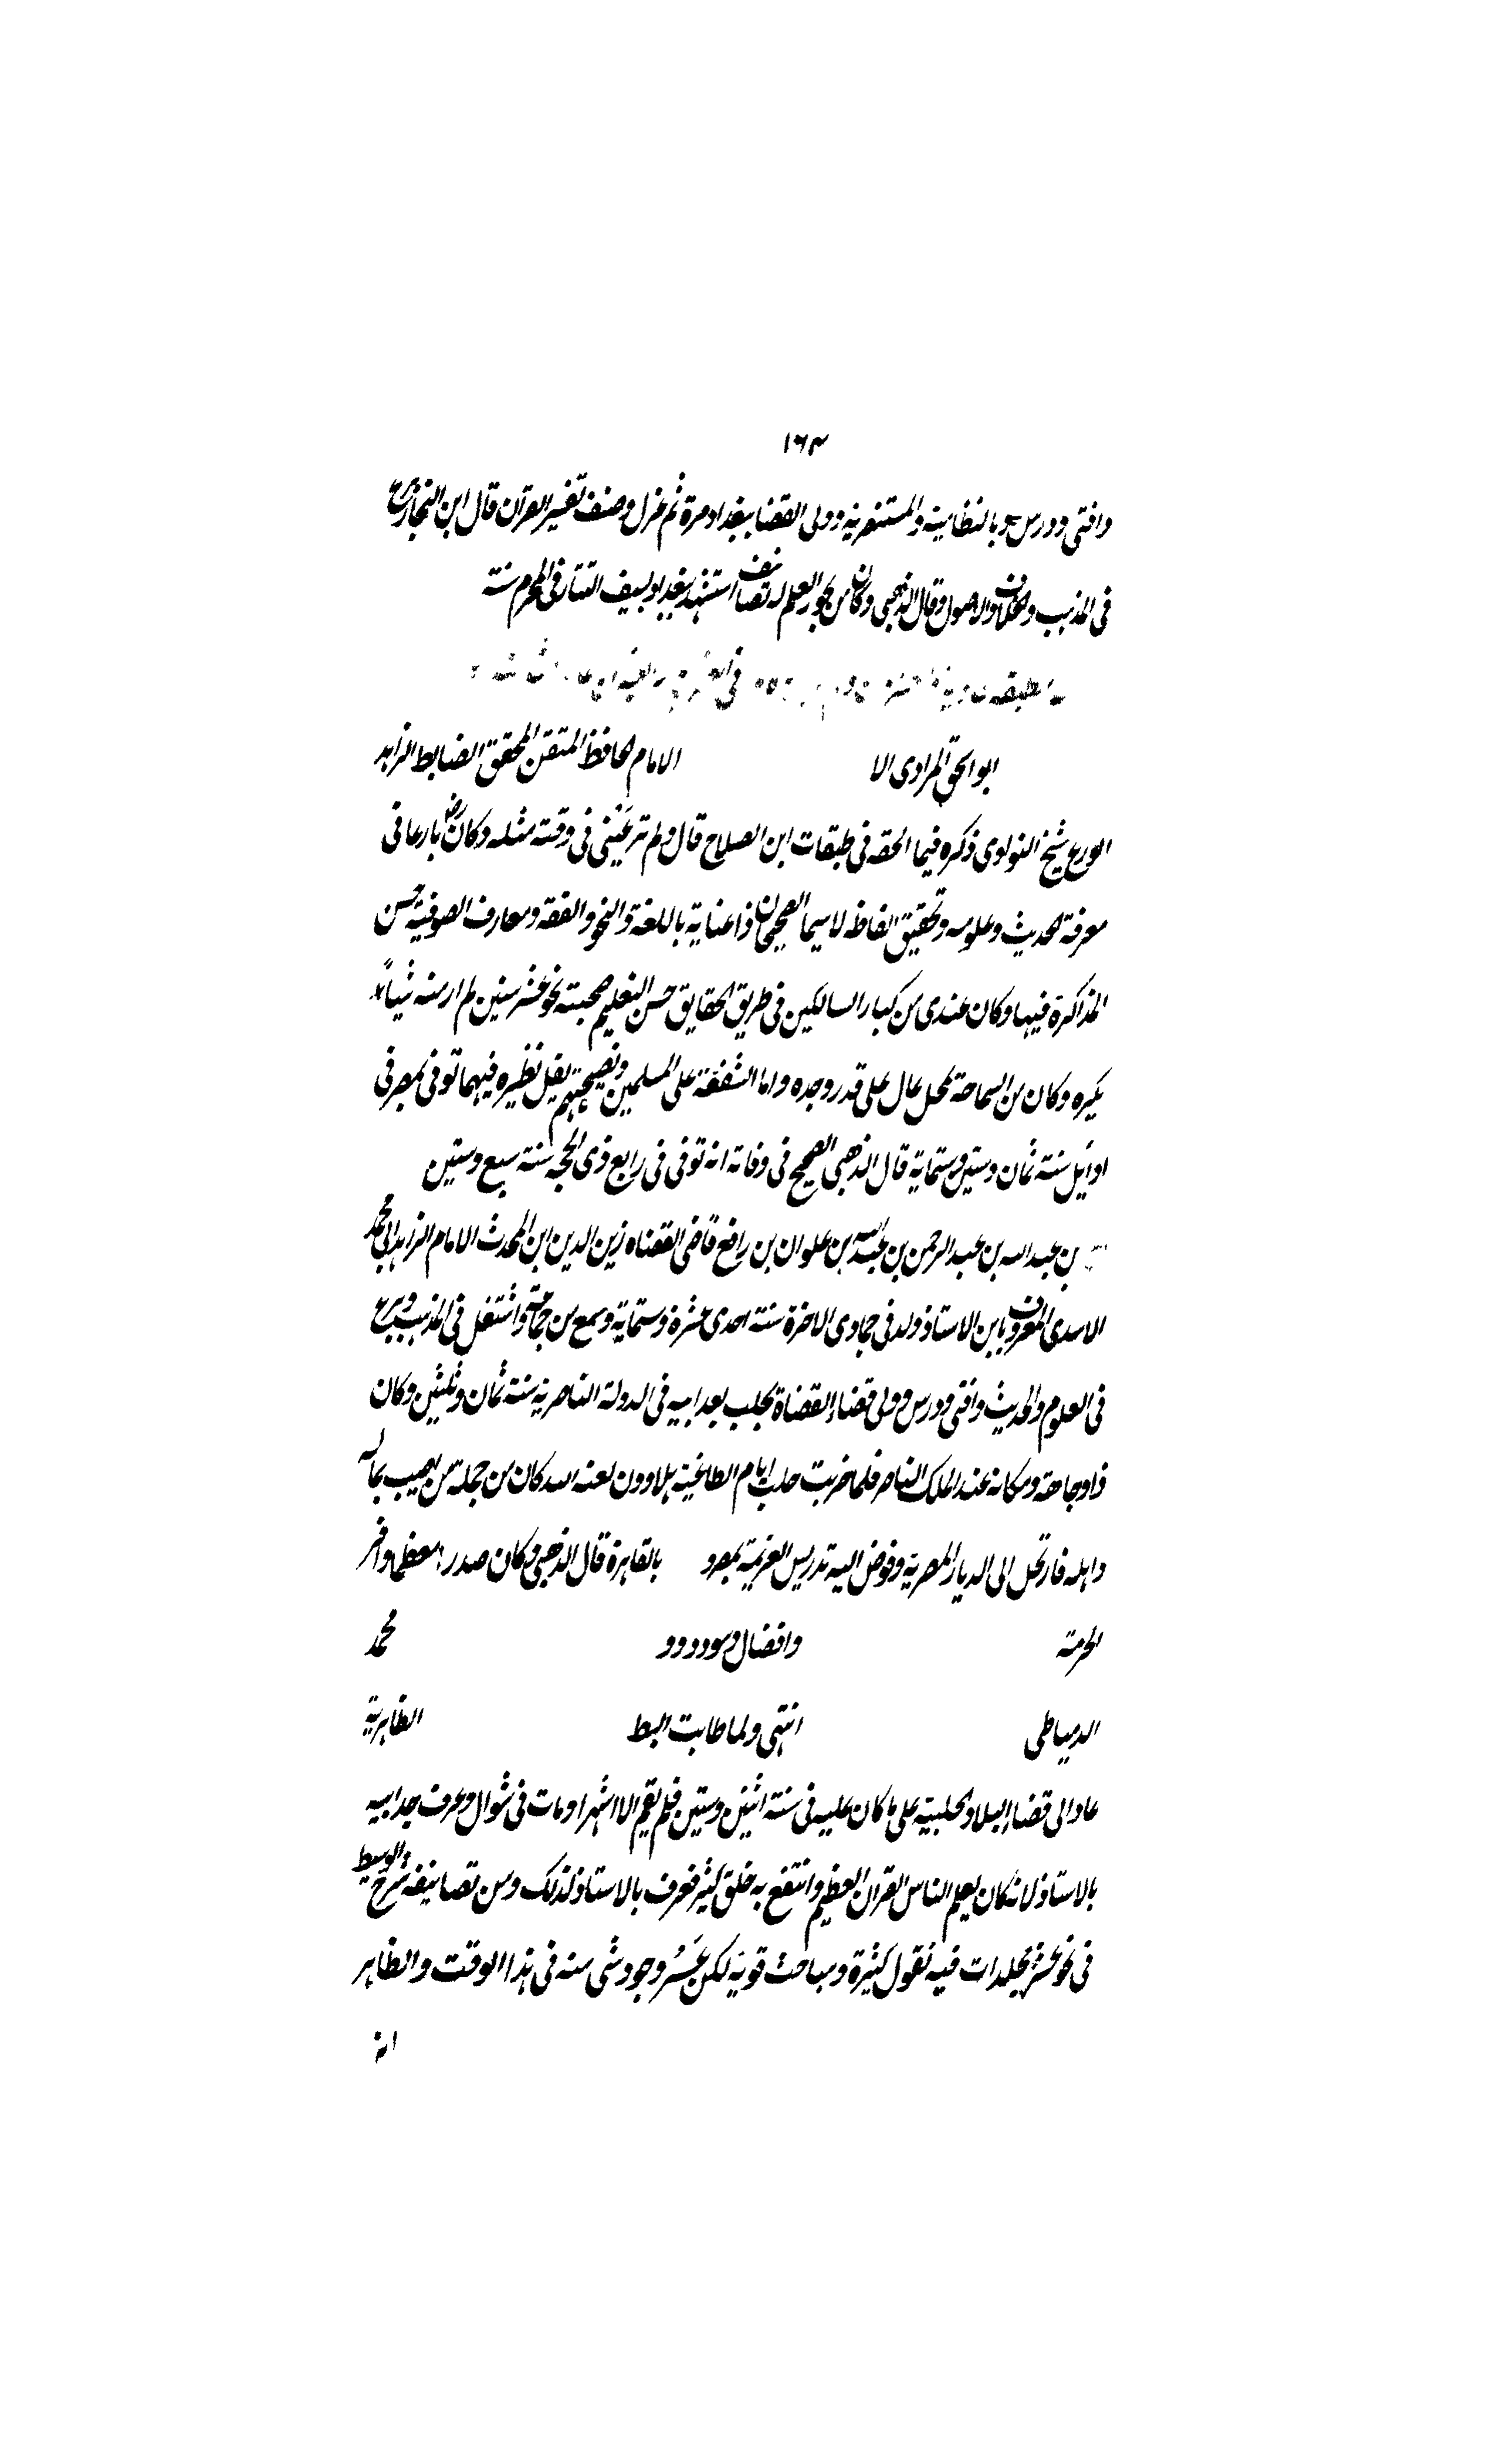 ١٦٣
وافتى ودرس وبالنظامية والمستنصرية وولى القضا ببغداد مرة ثم عزل وصنف تفسير القرآن قال ابن النجار برع
فى المذهب والخلاف والاصول وقال الذهبى وكان من بحور العلم له تصانيف استشهد ببغداد بسيف التتار فى المحرم سنة
ابو الحق المرادى الا الامام الحافظ المتقن المحقق الضابط الزاهد
الورع شيخ النواوى ذكره فيما الحقه فى طبقات ابن الصلاح قال ولم تر عينى فى وقته مثله وكان رض بارعا فى
معرفة الحديث وعلومه وتحقيق الفاظه لاسيما الصحيحان ذا عناية باللغة والنحو والفقه ومعارف الصوفية حسن
المذاكرة فيها وكان عندى من كبار السالكين فى طريق الحقايق حسن التعليم صحبته نحو عشر سنين لم ار منه شيأ
يكره وكان من السماحة بمحل عال على قدر وجده واما الشفقة على المسلمين ونصيحتهم يقل نظيره فيهما توفى بمصر فى
اوايل سنة ثمان وستين وستماية قال الذهبى الصحيح فى وفاته انه توفى فى رابع ذى الحجه سنة سبع وستين
بن عبد الله بن عبد الرحمن بن عبد الله بن علوان بن رافع قاضى القضاه زين الدين ابن المحدث الامام الزاهد ابى محمد
الاسدى المعروف بابن الاستاذ ولد فى جمادى الاخرة سنة احدى عشرة وستماية وسمع من جماعة واشتغل فى المذهب وبرع
فى العلوم والحديث وافتى ودرس وولى قضاء القضاة بحلب بعد ابيه فى الدولة الناصرية سنة ثمان وثلثين وكان
ذا وجاهة ومكانه عند الملك الناصر فلما خربت حلب ايام الطاغية هلاوون لعنه الله كان من جملة من اصيب بماله
واهله فارتحل الى الديار المصرية وفوض اليه تدريس المعزية بمصر و بالقاهرة قال الذهبى وكان صدرا معظما وافر
الحرمة وافضال وسودد و محمد
الدمياطى انتهى ولما طابت البط الظاهرية
عاد الى قضاء البلاد الحلبية على ما كان عليه فى سنة اثنين وستين فلم يقم الا اشهرا ومات فى شوال وعرف جد ابيه
بالاستاذ لانه كان يعلم الناس القرآن العظيم وانتفع به خلق كثير فعرف بالاستاذ لذلك ومن تصانيفه شرح الوسيط
فى نحو عشر مجلدات فيه نقول كثيرة ومباحث قوية لكن عَسُرَ وجود شى منه فى هذا الوقت والظاهر
انه